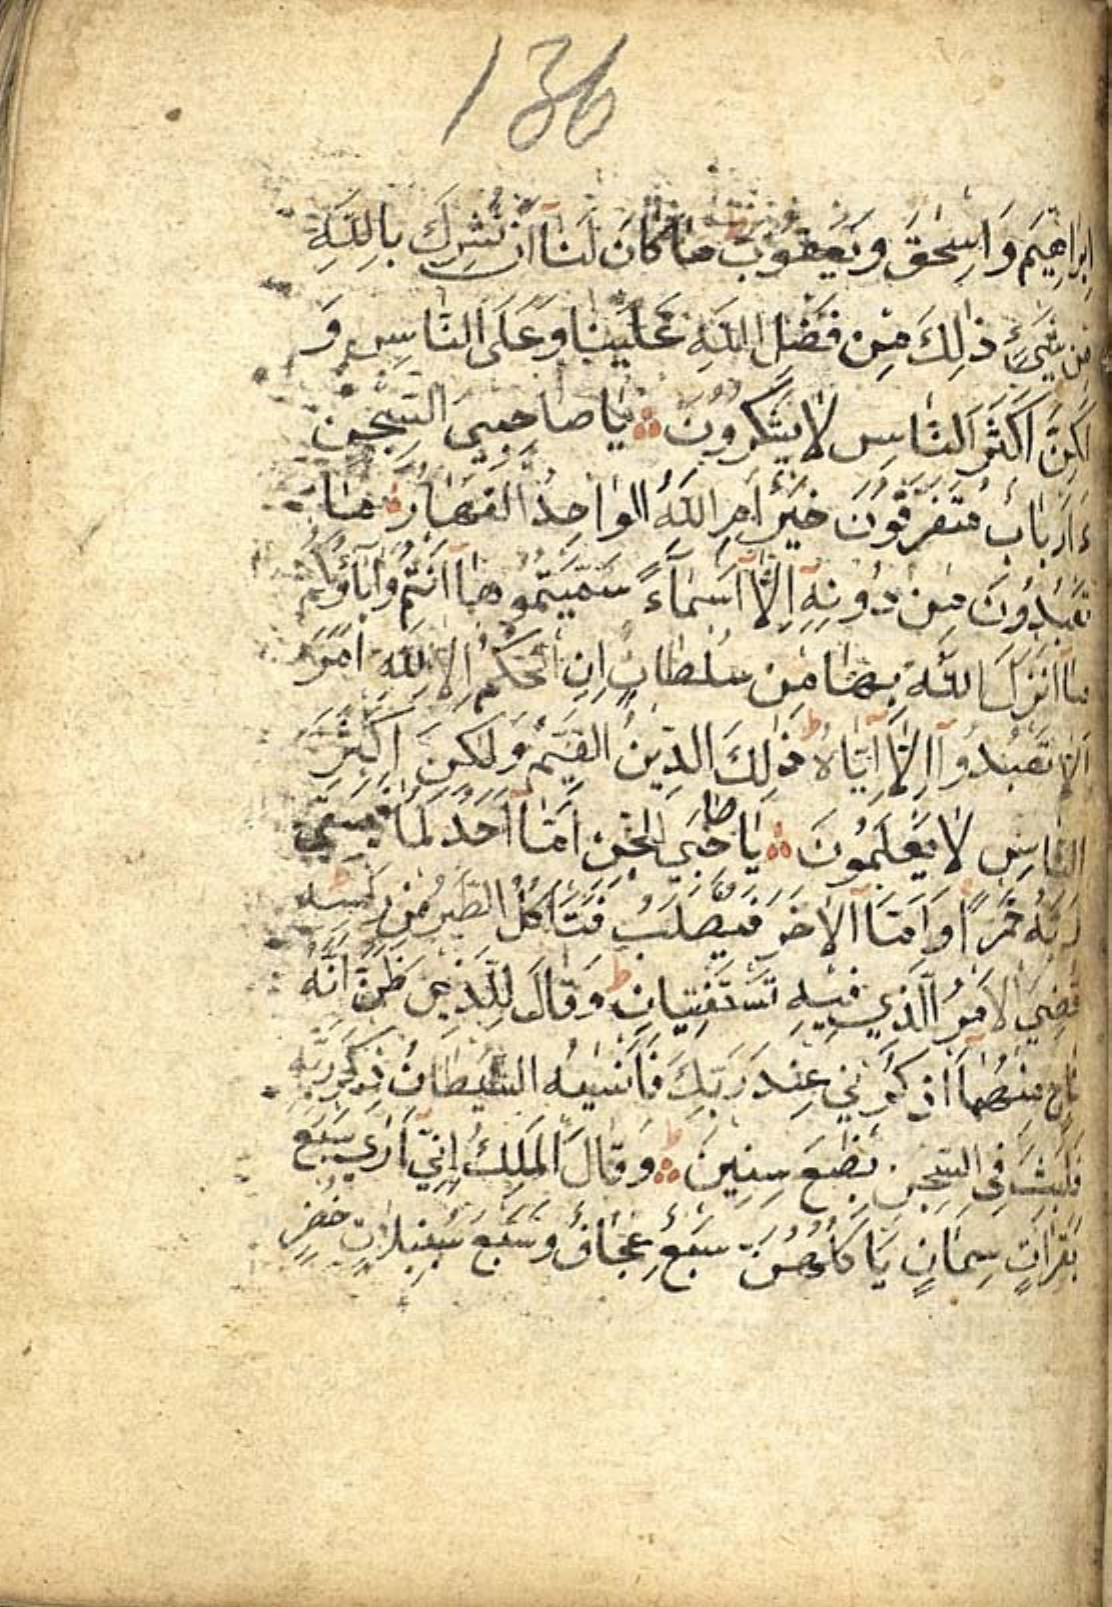 136
اِبْرَاهِيمَ وَاِسْحٰقَ وَيَعْقُوبَ مَا كَانَ لَنَآ اَنْ نُشْرِكَ بِاللّٰهِ
مِنْ شَيْءٍ ذٰلِكَ مِنْ فَضْلِ اللّٰهِ عَلَيْنَا وَعَلَى النَّاسِ وَ
لٰكِنَّ اَكْثَرَ النَّاسِ لَا يَشْكُرُونَ يَا صَاحِبَيِ السِّجْنِ
ءَاَرْبَابٌ مُتَفَرِّقُونَ خَيْرٌ اَمِ اللّٰهُ الوَاحِدُ القَهَّارُ مَا
تَعْبُدُونَ مِنْ دُونِهٖٓ اِلَّآ اَسْمَآءً سَمَّيْتُمُوهَآ اَنْتُمْ وَاٰبَآؤُكُمْ
مَآ اَنْزَلَ اللّٰهُ بِهَا مِنْ سُلْطَانٍ اِنِ الْحُكْمُ اِلَّا لِلّٰهِ اَمَرَ
اَلَّا تَعْبُدُوٓا اِلَّآ اِيَّاهُ ط ذٰلِكَ الدِّينُ القَيِّمُ وَلٰكِنَّ اَكْثَرَ
النَّاسِ لَا يَعْلَمُونَ يَا صَاحِبَيِ السِّجْنِ اَمَّآ اَحَدُكُمَا فَيَسْقِي
رَبَّهُ خَمْرًا وَاَمَّا الْاٰخَرُ فَيُصْلَبُ فَتَأْكُلُ الطَّيْرُ مِنْ رَأْسِهِ ط
قُضِيَ الْاَمْرُ الَّذِي فِيهِ تَسْتَفْتِيَانِ ط وَقَالَ لِلَّذِي ظَنَّ اَنَّهُ
نَاجٍ مِنْهُمَا اذْكُرْنِي عِنْدَ رَبِّكَ فَاَنْسٰيهُ الشَّيْطَانُ ذِكْرَ رَبِّهِ
فَلَبِثَ فِي السِّجْنِ بِضْعَ سِنِينَ ط وَقَالَ الْمَلِكُ اِنِّيٓ اَرٰي سَبْعَ
بَقَرَاتٍ سِمَانٍ يَأْكُلُهُنَّ سَبْعٌ عِجَافٌ وَسَبْعَ سُنْبُلَاتٍ خُضْرٍ